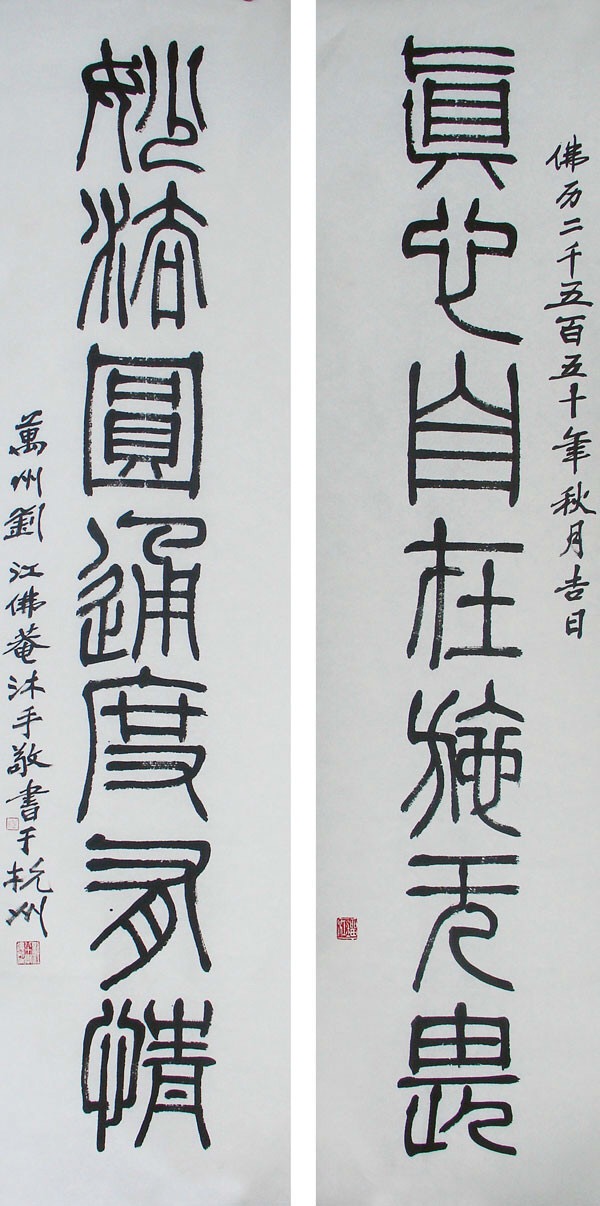 佛历二千五百五十年秋月吉日
眞心自在施无畏
妙法圓通度有情
萬州劉江佛菴沐手敬書于杭州